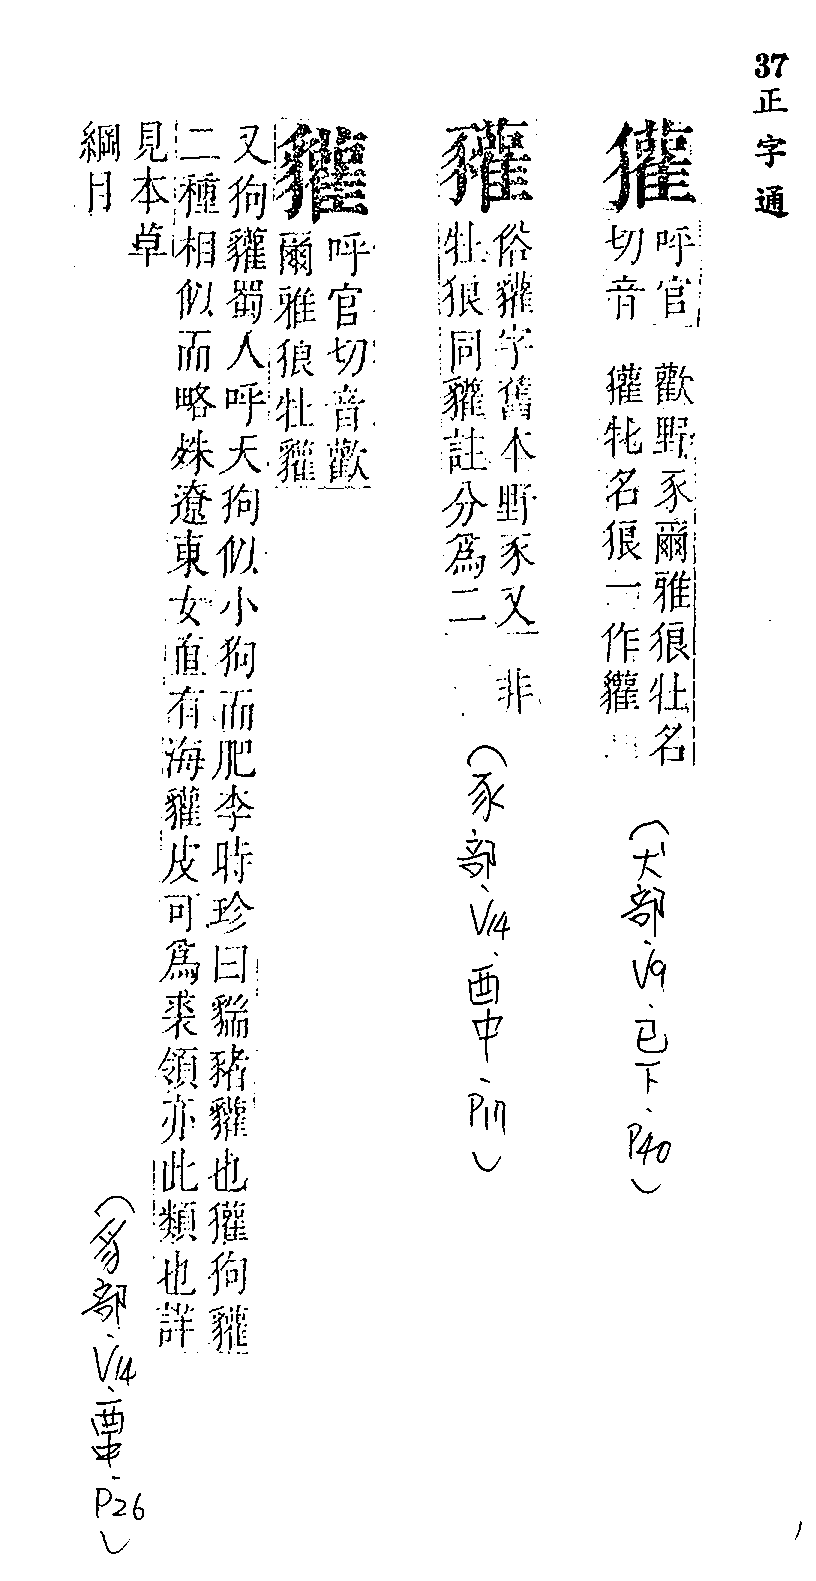 37 正字通
獾
呼官
切音
歡野豕爾雅狼牡名
獾牝名狼一作貛
(犬部、V9、巳下、P40)
䝔
俗貛字舊本野豕又 非
牡狼同貛註分爲二
(豕部、V14、酉中、P17)
貛
呼官切音歡
爾雅狼牡貛
又狗貛蜀人呼天狗似小狗而肥李時珍曰貒豬貛也獾狗貛
二種相似而略殊遼東女直有海貛皮可爲裘領亦此類也詳
見本草
綱目
(豸部、V14、酉中、P26)